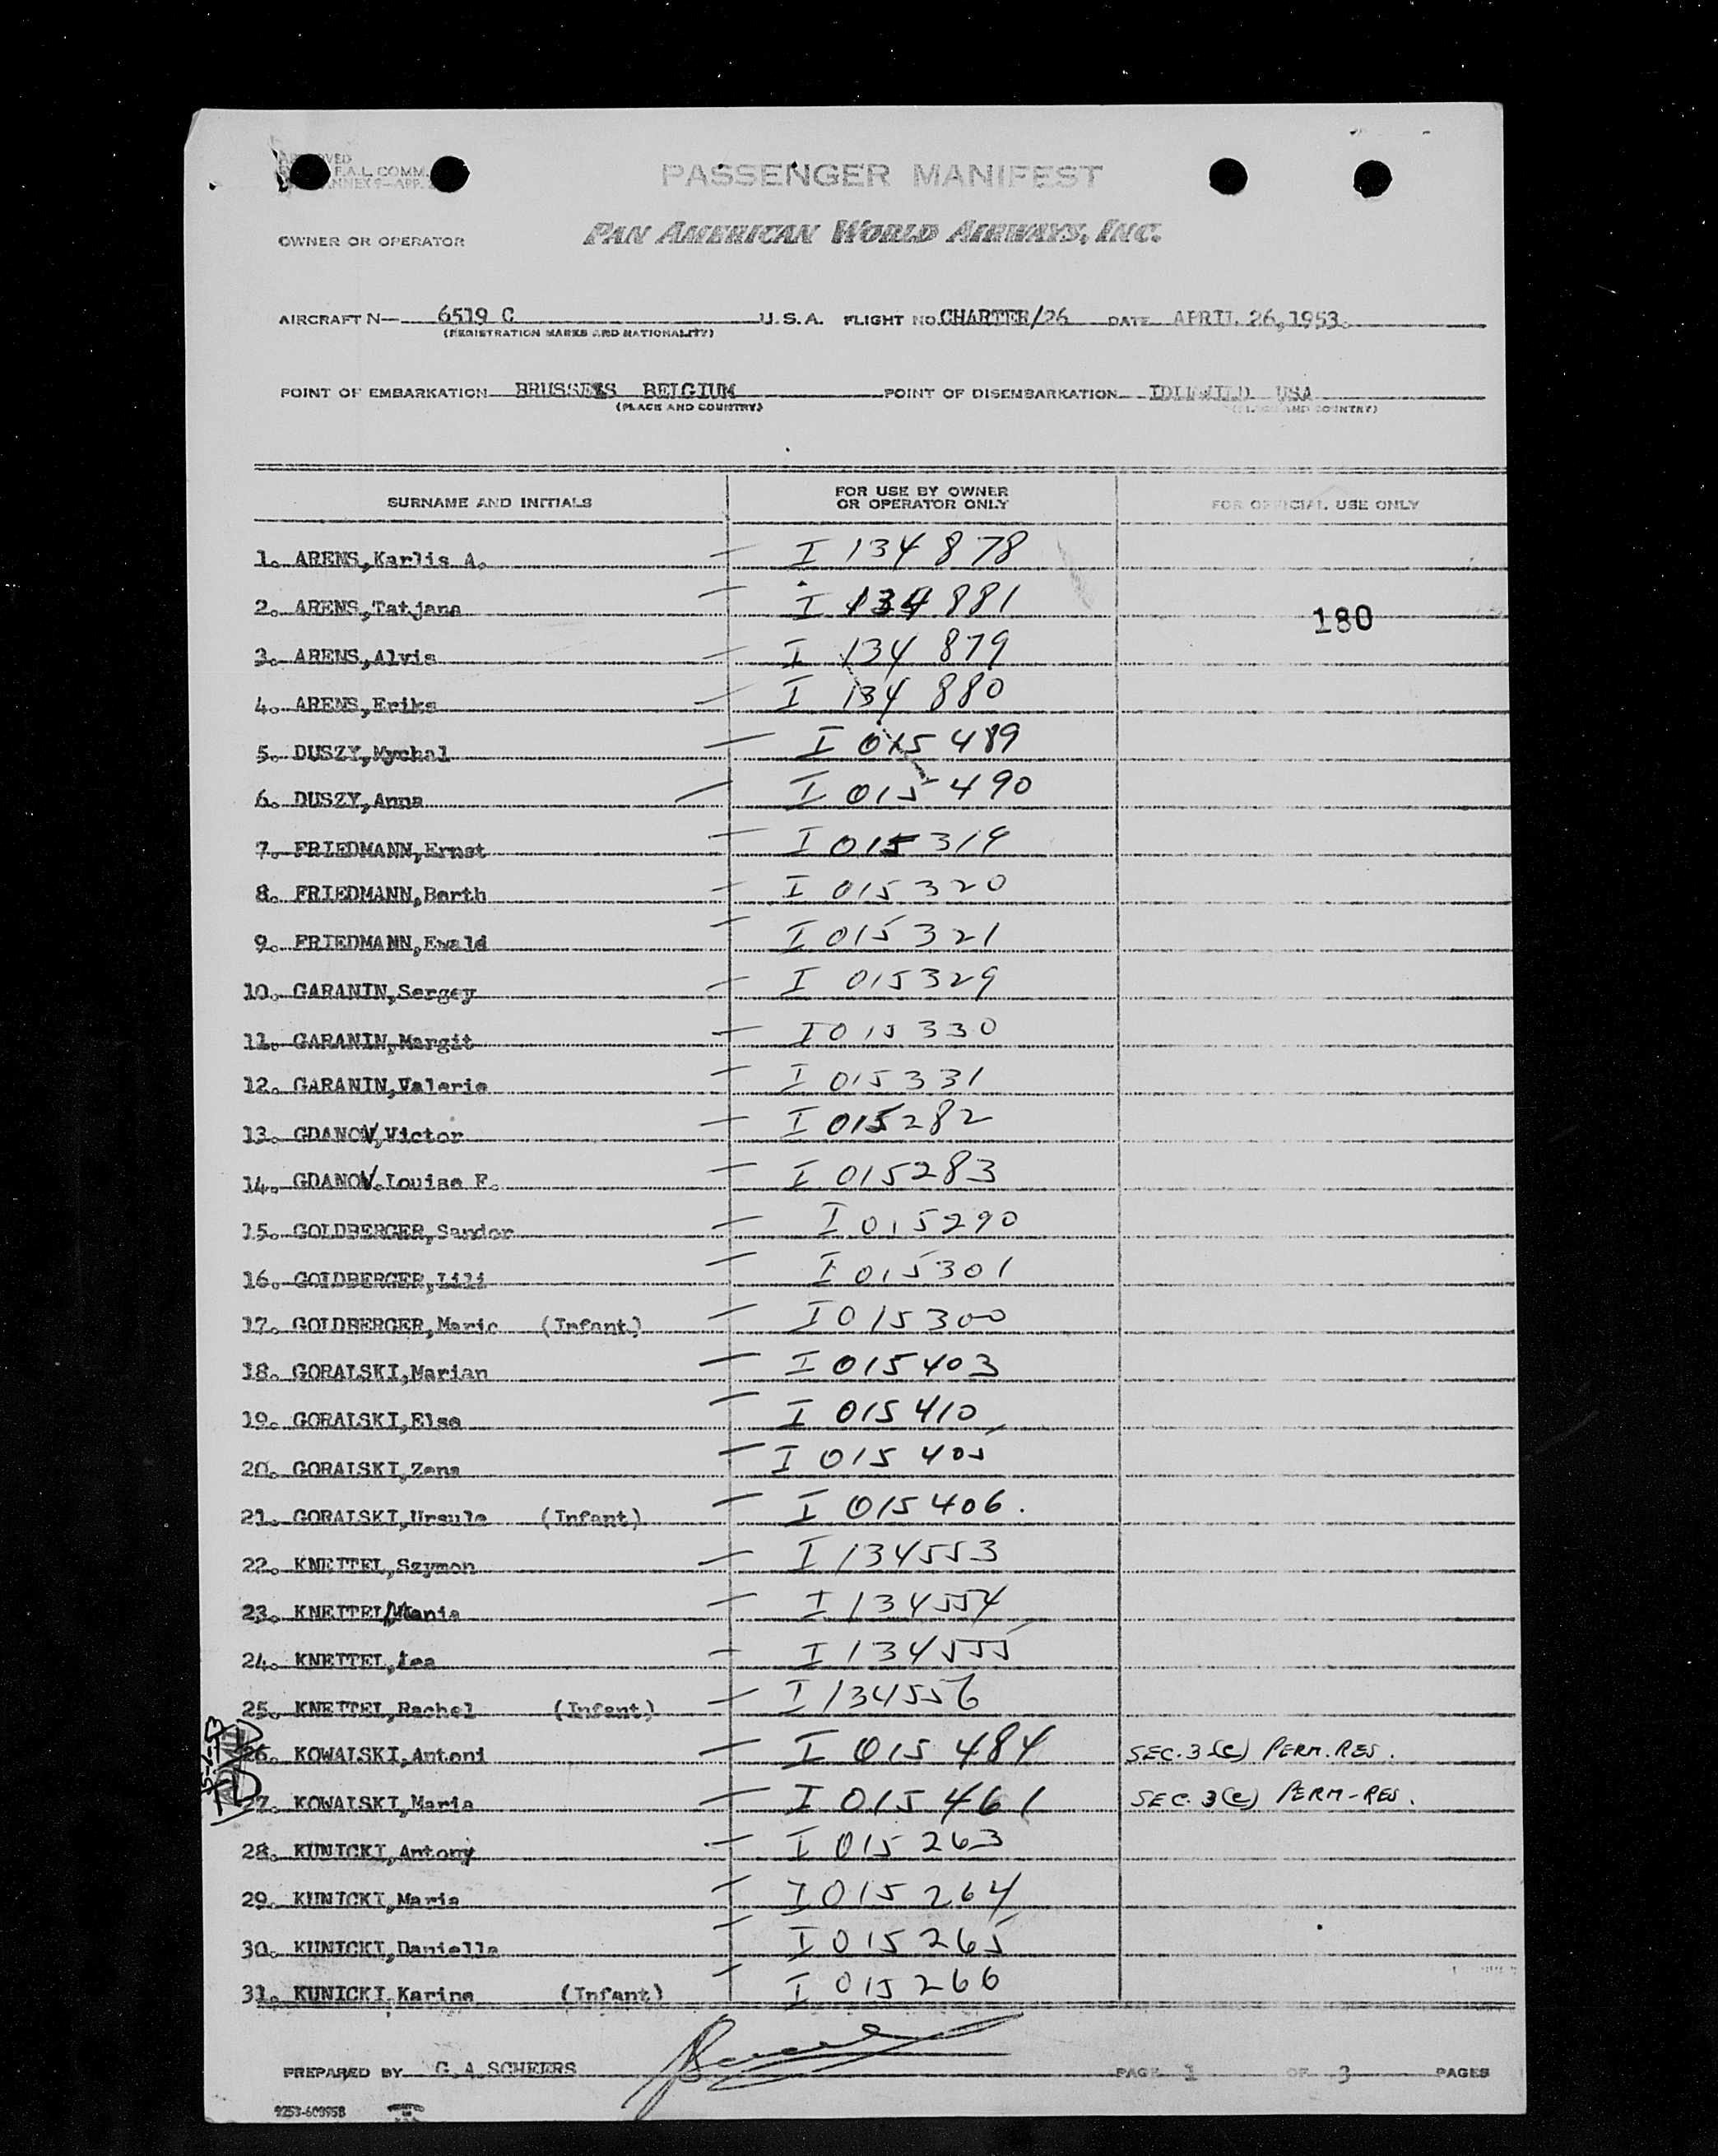 PASSENGER MANIFEST
F.A.L. COMM.
OWNER OR OPERATOR PAN AMERICAN WORLD AIRWAYS, INC.
AIRCRAFT N— 6519 C U.S.A. FLIGHT NO. CHARTER/26 DATE APRIL 26,1953.
(REGISTRATION MARKS AND NATIONALITY)
POINT OF EMBARKATION BRUSSELS BELGIUM POINT OF DISEMBARKATION IDLEWILD USA
(PLACE AND COUNTRY) (PLACE AND COUNTRY)
SURNAME AND INITIALS FOR USE BY OWNER OR OPERATOR ONLY FOR OFFICIAL USE ONLY
1. ARENS,Karlis A. — I 134 878
2. ARENS,Tatjana — I 134 881
180
3. ARENS,Alvis — I 134 879
4. ARENS,Eriks — I 134 880
5. DUSZY,Mychal — I 015 489
6. DUSZY,Anna — I 015 490
7. FRIEDMANN,Ernst — I 015 319
8. FRIEDMANN,Berth — I 015 320
9. FRIEDMANN,Ewald — I 015 321
10. GARANIN,Sergey — I 015329
11. GARANIN,Margit — I 015 330
12. GARANIN,Valerie — I 015331
13. GDANOV,Victor — I 015282
14. GDANOV.Louise F. — I 015283
15. GOLDBERGER,Sandor — I 015290
16. GOLDBERGER,Lili — I 015301
17. GOLDBERGER,Maric (Infant) — I 015300
18. GORALSKI,Marian — I 015403
19. GORALSKI,Else — I 015410
20. GORALSKI,Zena — I 015 405
21. GORALSKI,Ursule (Infant) — I 015406.
22. KNEITEL,Szymon — I 134553
23. KNEITEL,Mania — I 134554
24. KNEITEL,Lea — I 134555
25. KNEITEL,Rachel (Infant) — I 134556
26. KOWALSKI,Antoni — I 015 484 SEC. 3(c) PERM. RES.
27. KOWALSKI,Maria — I 015 461 SEC. 3(c) PERM-RES.
28. KUNICKI,Antony — I 015 263
29. KUNICKI,Maria — I 015 264
30. KUNICKI,Danielle — I 015 265
31. KUNICKI Karine (Infant) — I 015 266
PREPARED BY G.A.SCHEERS PAGE 1 OF 3 PAGES